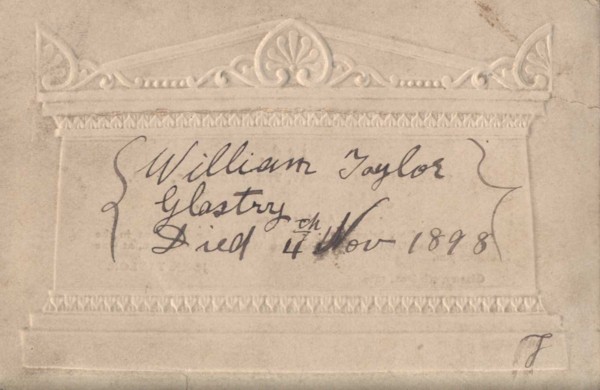 William Taylor
Glastry
Died 4th Nov 1898
T